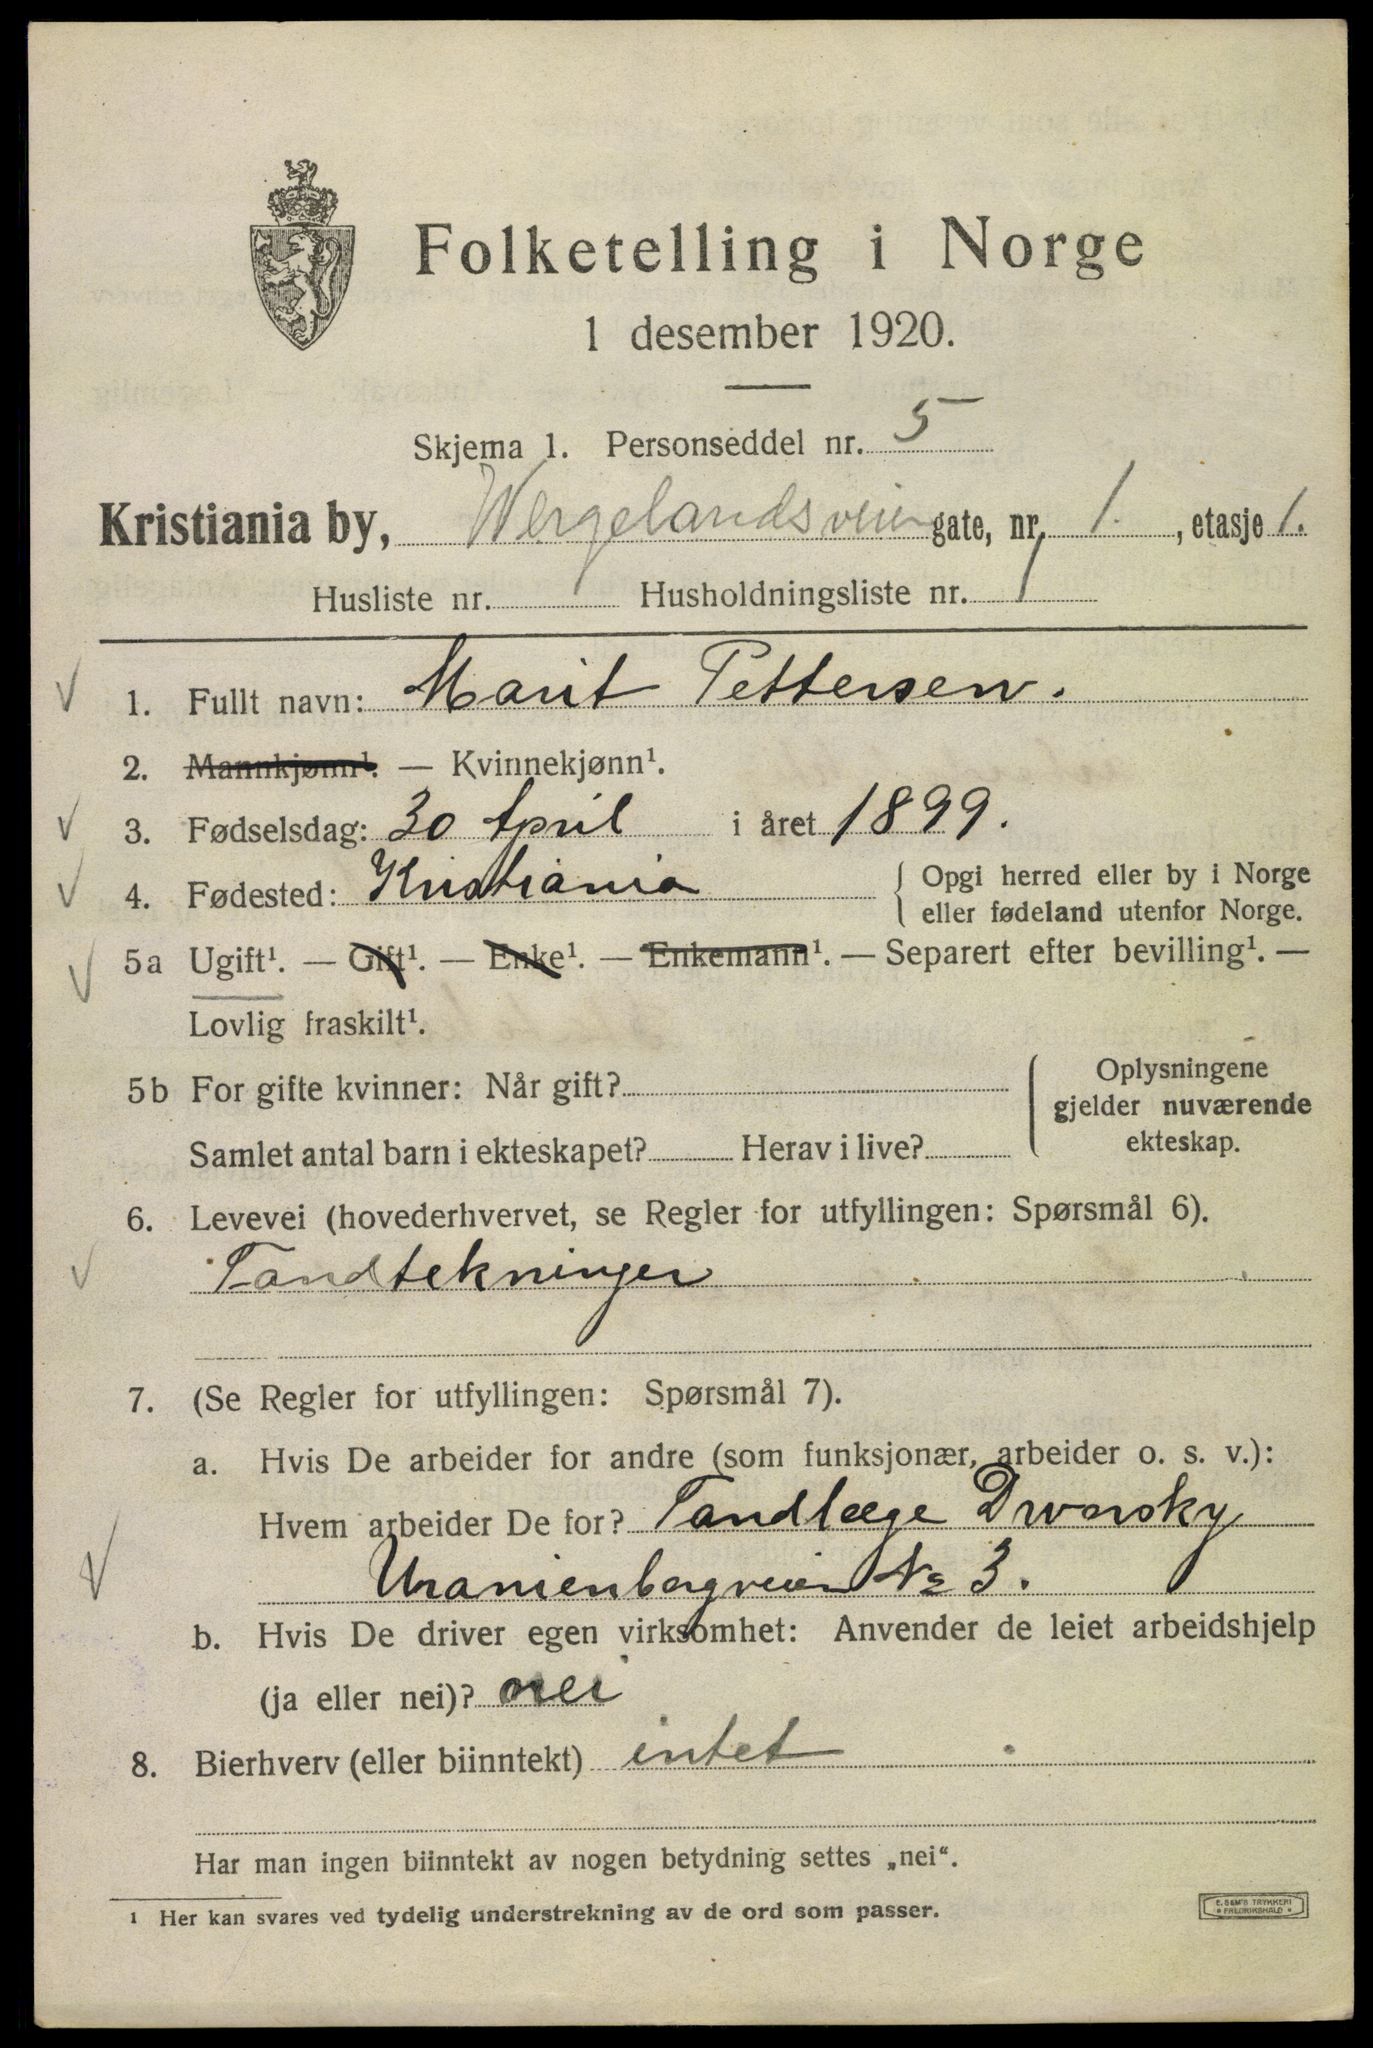 Folketelling i Norge
1 desember 1920.
Skjema 1. Personseddel nr. 5
Kristiania by, Wergelandsveien gate, nr. 1. , etasje 1.
Husliste nr. Husholdningsliste nr. 1
1. Fullt navn: Marit Pettersen.
2. Mannkjønn¹. — Kvinnekjønn¹.
3. Fødselsdag: 30 April i året 1899.
4. Fødested: Kristiania { Opgi herred eller by i Norge
eller fødeland utenfor Norge.
5a Ugift¹. — Gift¹. — Enke¹. — Enkemann¹. — Separert efter bevilling¹. —
Lovlig fraskilt¹.
5b For gifte kvinner: Når gift? { Oplysningene
gjelder nuværende
Samlet antal barn i ekteskapet? Herav i live? ekteskap.
6. Levevei (hovederhvervet, se Regler for utfyllingen: Spørsmål 6).
Tandtekninger
7. (Se Regler for utfyllingen: Spørsmål 7).
a. Hvis De arbeider for andre (som funksjonær, arbeider o. s. v.):
Hvem arbeider De for? Tandlæge Dworsky
Uranienborgveien No 3.
b. Hvis De driver egen virksomhet: Anvender de leiet arbeidshjelp
(ja eller nei)? nei
8. Bierhverv (eller biinntekt) intet
Har man ingen biinntekt av nogen betydning settes „nei“.
1 Her kan svares ved tydelig understrekning av de ord som passer.
E. SEM'S TRYKKERI
* FREDRIKSHALD *